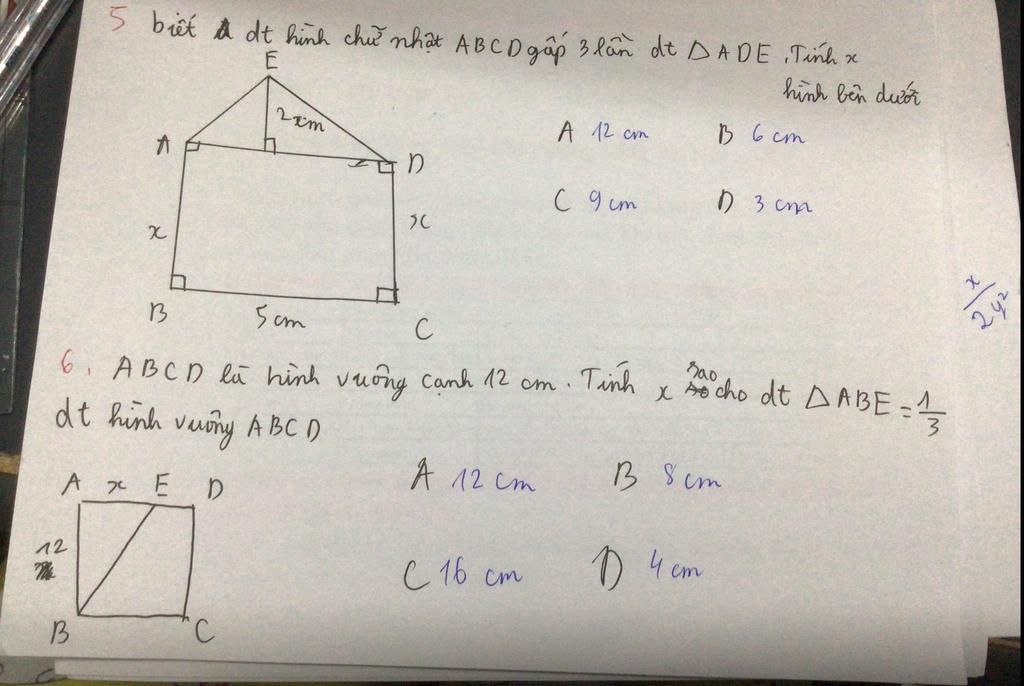 5 biết dt hình chữ nhật ABCD gấp 3 lần dt △ADE. Tính x
hình bên dưới
E
2 cm
A
D
x
x
B
5 cm
C
A 12 cm B 6 cm
C 9 cm D 3 cm
x/2y²
6. ABCD là hình vuông cạnh 12 cm. Tính x sao cho dt △ABE = 1/3
dt hình vuông ABCD
A x E D
12
B
C
A 12 cm B 8 cm
C 16 cm D 4 cm